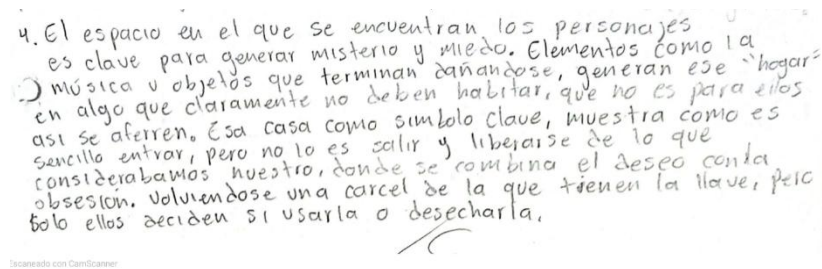 4. El espacio en el que se encuentran los personajes
es clave para generar misterio y miedo. Elementos como la
música u objetos que terminan dañandose, generan ese "hogar"
en algo que claramente no deben habitar, que no es para ellos
asi se aferren. Esa casa como simbolo clave, muestra como es
sencillo entrar, pero no lo es salir y liberarse de lo que
considerabamos nuestro, donde se combina el deseo con la
obsesion. Volviendose una carcel de la que tienen la llave, pero
solo ellos deciden si usarla o desecharla.
Escaneado con CamScanner